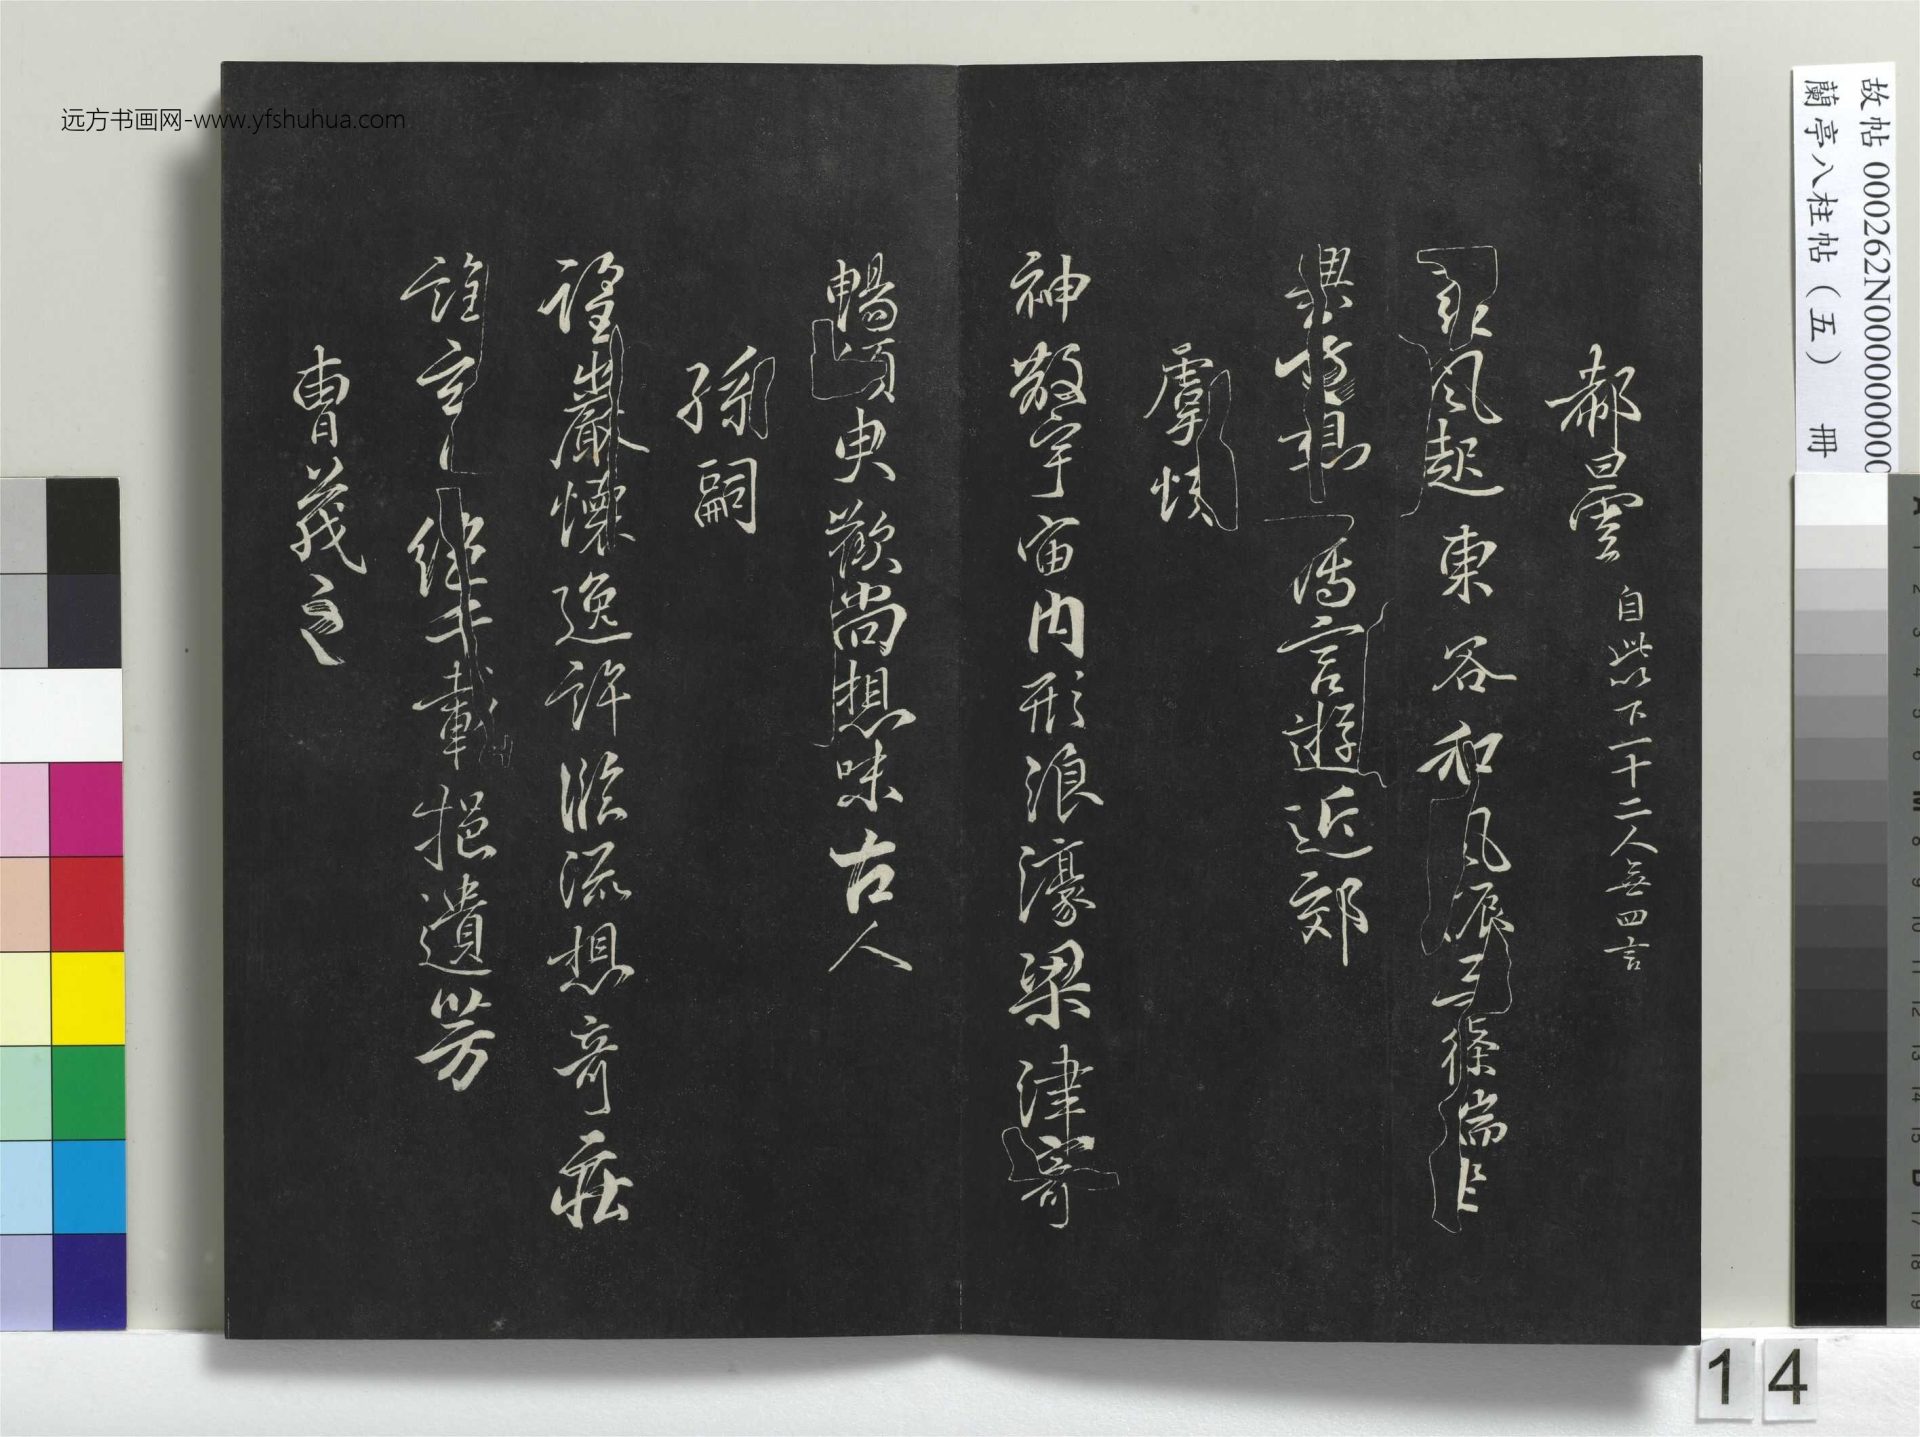 远方书画网-www.yfshuhua.com
故帖 000262N000000000
蘭亭八柱帖（五） 冊
郗曇 自此以下一十二人無四言
風起東谷和風振條端
想言遊近郊
虞悅
神散宇宙內形浪濠梁津寄
暢須臾歡尚想味古人
孫嗣
望巖懷逸許臨流想奇莊
誰云絕千載挹遺芳
曹茂之
14